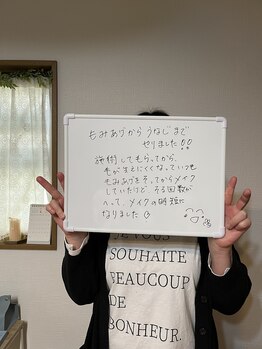 もみあげからうなじまで
やりました!!
施術してもらってから、
毛が生えにくくなっていつも
もみあげをそってからメイク
していたけど、そる回数が
へって、メイクの時短に
なりました
SOUHAITE
BEAUCOUP
DE
BONHEUR.